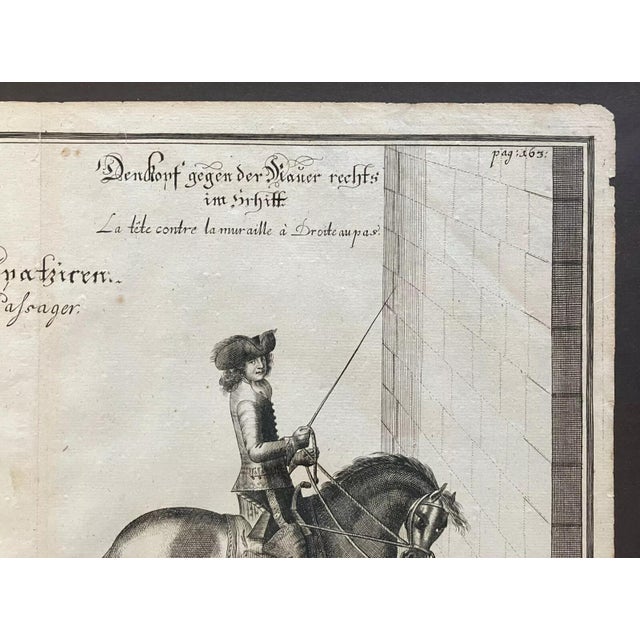 pag: 163:
Den kopf gegen der Maüer rechts
im Schitt
La tête contre la muraille à Droite au pas.
patziren.
assager.